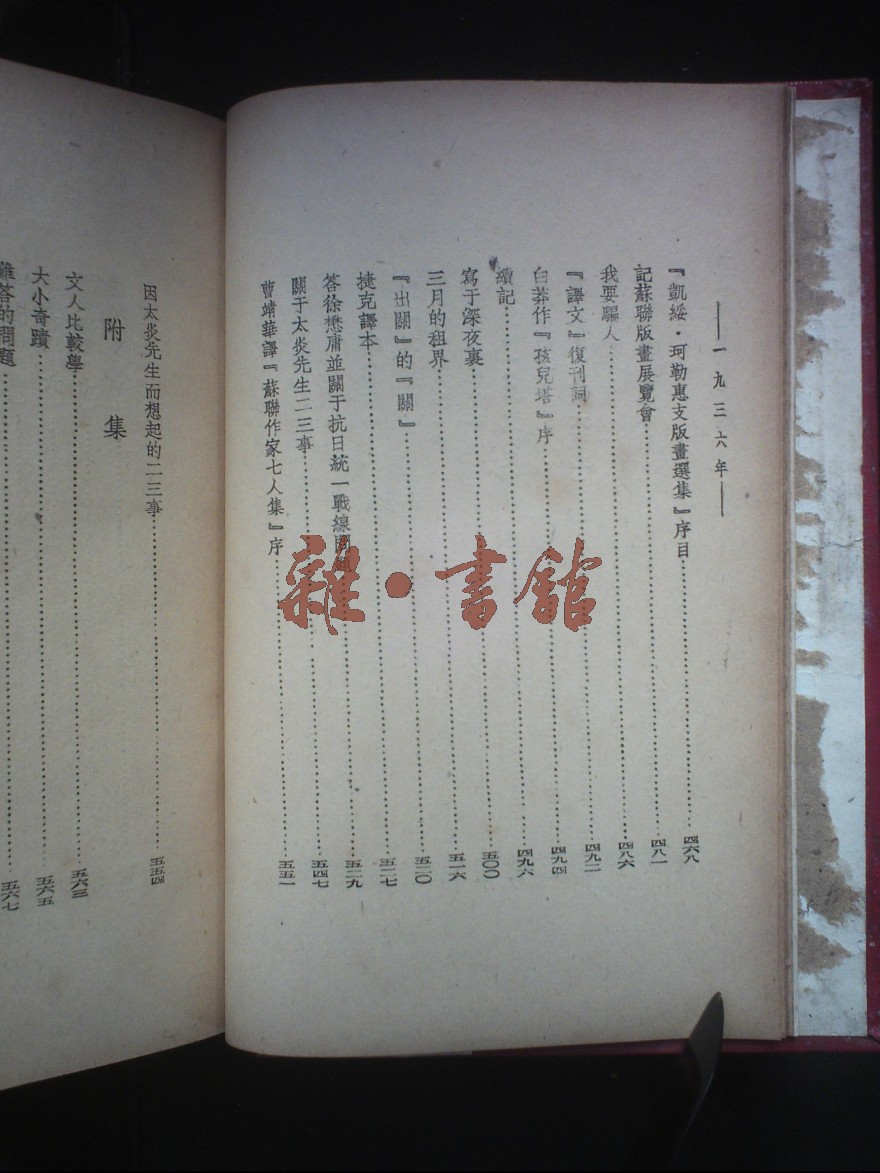 ——一九三六年——
『凱綏·珂勒惠支版畫選集』序目……四六八
記蘇聯版畫展覽會……四八一
我要騙人……四八六
『譯文』復刊詞……四九二
白莽作『孩兒塔』序……四九四
續記……四九六
寫于深夜裏……五〇〇
三月的租界……五一六
『出關』的『關』……五二〇
捷克譯本……五二七
答徐懋庸並關于抗日統一戰線問題……五二九
關于太炎先生二三事……五四七
曹靖華譯『蘇聯作家七人集』序……五五一
因太炎先生而想起的二三事……五五四
附集
文人比較學……五六三
大小奇蹟……五六五
難答的問題……五六七
雜·書館